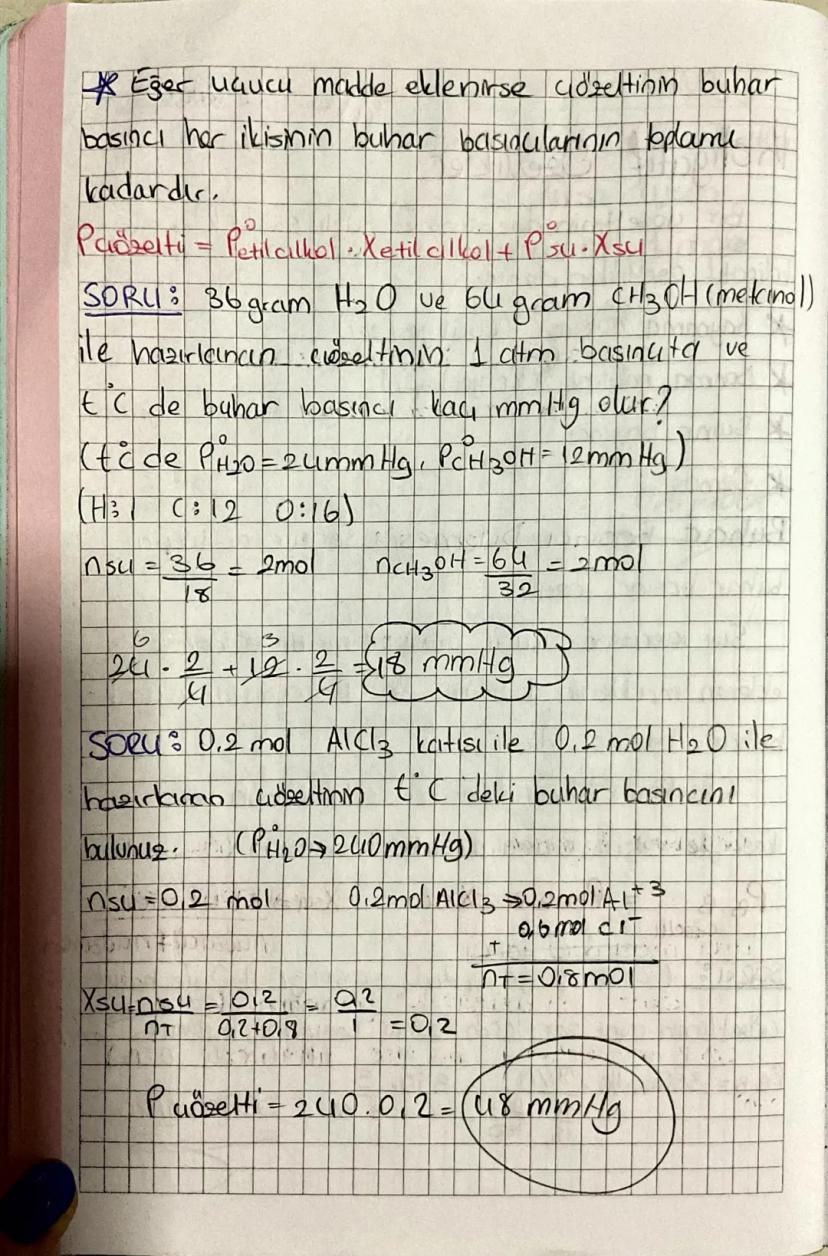 * Eğer uçucu madde eklenirse çözeltinin buhar
basıncı her ikisinin buhar basınçlarının toplamı
kadardır.
Pçözelti = P°etil alkol . Xetil alkol + P°su . Xsu
SORU: 36 gram H2O ve 64 gram CH3OH (metanol)
ile hazırlanan çözeltinin 1 atm basınçta ve
t°C de buhar basıncı kaç mmHg olur?
(t°C de P°H2O = 24 mmHg, P°CH3OH = 12 mm Hg)
(H:1 C:12 O:16)
nsu = 36/18 = 2mol nCH3OH = 64/32 = 2mol
6 3
24 . 2/4 + 12 . 2/4 = 18 mmHg
SORU: 0,2 mol AlCl3 katısı ile 0,2 mol H2O ile
hazırlanan çözeltinin t°C deki buhar basıncını
bulunuz. (P°H2O → 240 mmHg)
nsu = 0,2 mol 0,2 mol AlCl3 → 0,2 mol Al+3
0,6 mol Cl-
+
nT = 0,8 mol
Xsu = nsu/nT = 0,2/0,2+0,8 = 0,2/1 = 0,2
Pçözelti = 240 . 0,2 = 48 mmHg